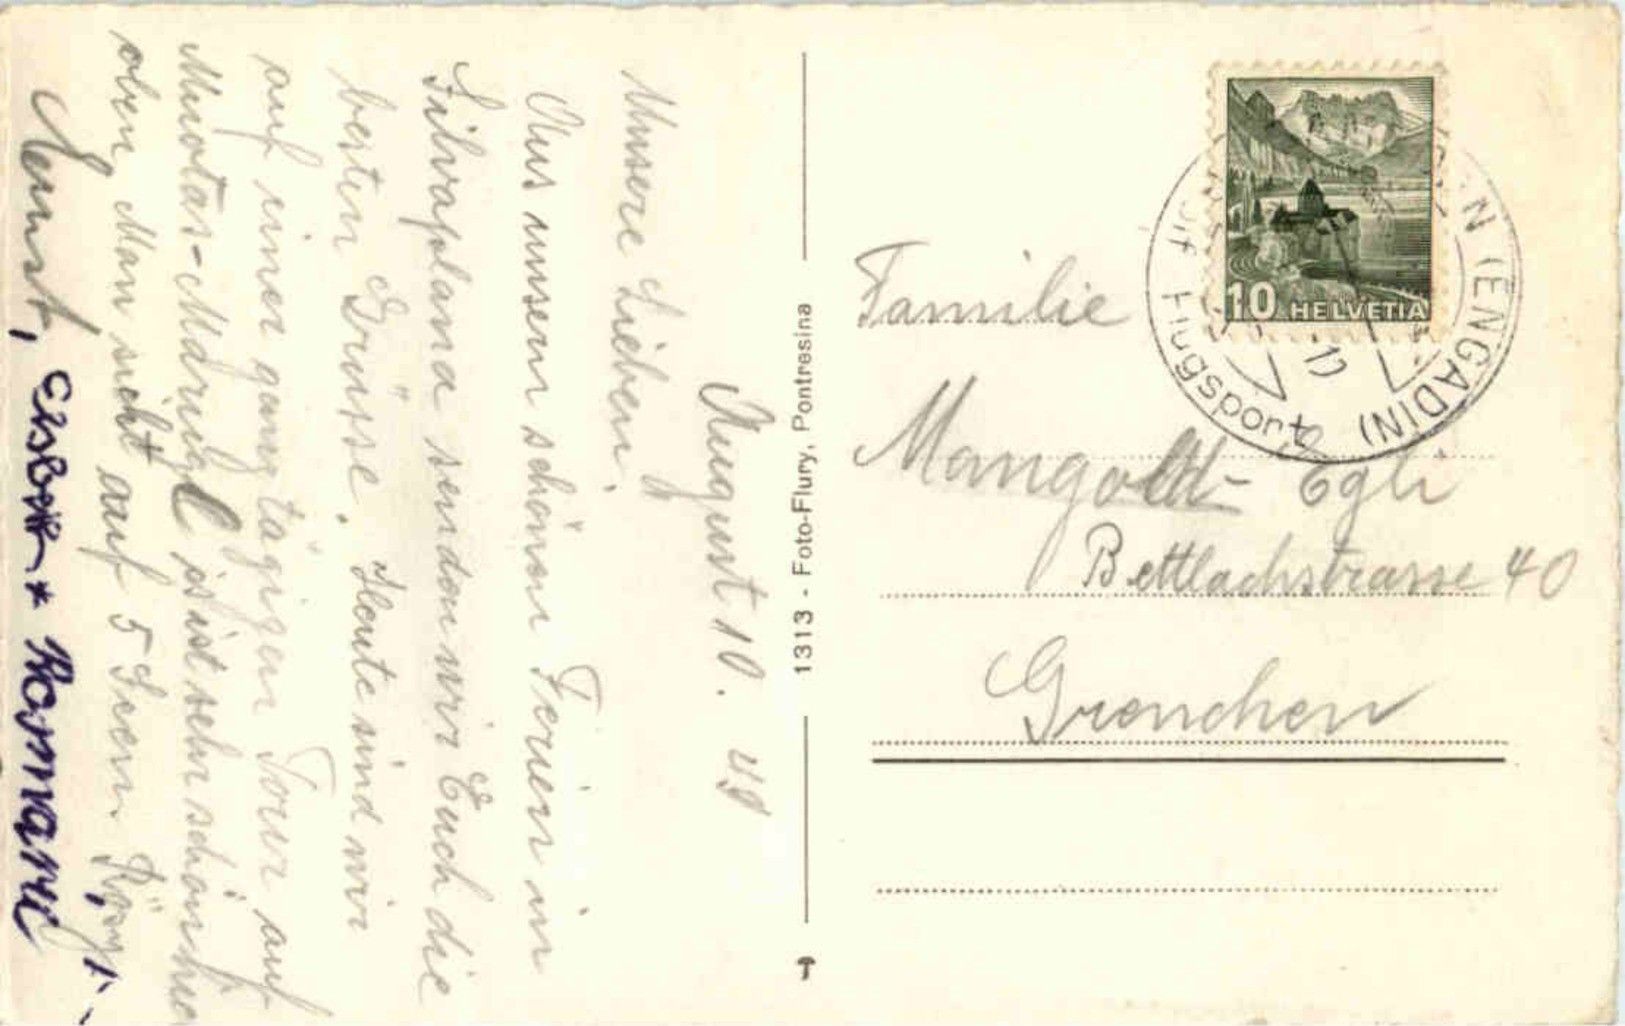 August 10. 40
Unsere Lieben!
Aus unsern schönen Ferien in
Silvaplana senden wir Euch die
besten Grüsse. Heute sind wir
auf einer ganztägigen Tour auf
Muottas-Muraigl es ist sehr schön hier
oben Man sieht auf 5 Seen. Rösy,
Ernst, Elsbeth + Rosmarie
1313 - Foto-Flury, Pontresina
10 HELVETIA
(ENGADIN)
Flugsport
Familie
Mangold- Egli
Bettlachstrasse 40
Grenchen